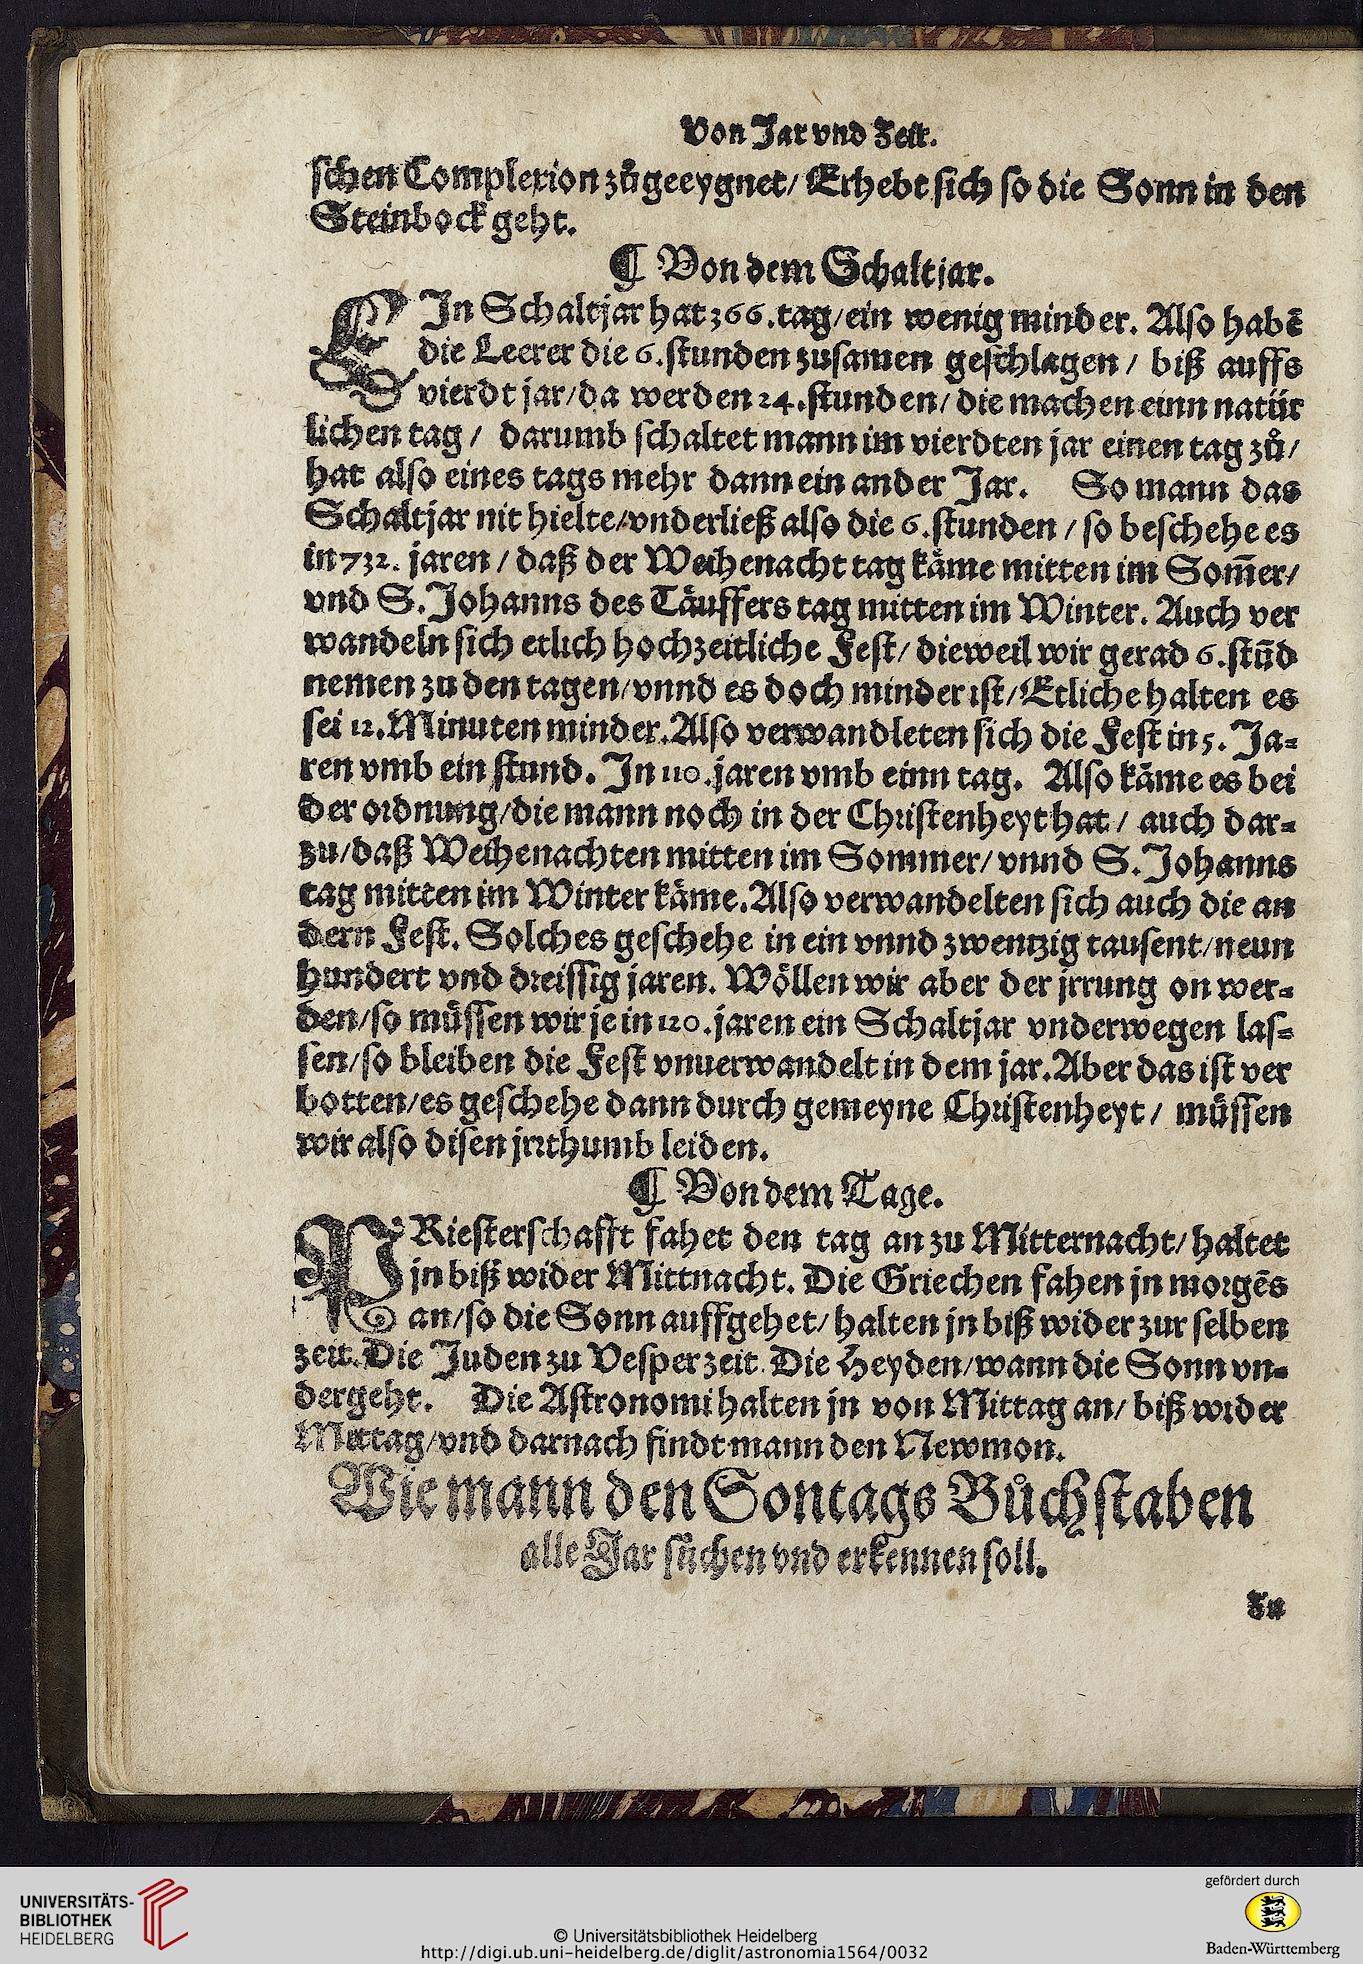 Von Jar vnd Zeit.
schen Complexion zůgeeygnet/ Erhebt sich so die Sonn in den
Steinbock geht.
¶ Von dem Schaltjar.
EIn Schaltjar hat 366. tag/ein wenig minder. Also habē
die Leerer die 6. stunden zusamen geschlagen / biß auffs
vierdt jar/da werden 24. stunden/ die machen einn natür
lichen tag / darumb schaltet mann im vierdten jar einen tag zů/
hat also eines tags mehr dann ein ander Jar. So mann das
Schaltjar nit hielte/vnderließ also die 6. stunden / so beschehe es
in 732. jaren / daß der Weihenacht tag käme mitten im Som̄er/
vnd S. Johanns des Täuffers tag mitten im Winter. Auch ver
wandeln sich etlich hochzeitliche Fest/ dieweil wir gerad 6. stūd
nemen zu den tagen/vnnd es doch minder ist/Etliche halten es
sei 12. Minuten minder. Also verwandleten sich die Fest in 5. Ja-
ren vmb ein stund. In 110. jaren vmb einn tag. Also käme es bei
der ordnung/die mann noch in der Christenheyt hat / auch dar-
zu/daß Weihenachten mitten im Sommer/ vnnd S. Johanns
tag mitten im Winter käme. Also verwandelten sich auch die an
dern Fest. Solches geschehe in ein vnnd zwentzig tausent/neun
hundert vnd dreissig jaren. Wöllen wir aber der jrrung on wer-
den/so müssen wir je in 120. jaren ein Schaltjar vnderwegen las-
sen/so bleiben die Fest vnuerwandelt in dem jar. Aber das ist ver
botten/es geschehe dann durch gemeyne Christenheyt / müssen
wir also disen jrrthumb leiden.
¶ Von dem Tage.
PRiesterschafft fahet den tag an zu Mitternacht/ haltet
jn biß wider Mittnacht. Die Griechen fahen jn morgēs
an/so die Sonn auffgehet/ halten jn biß wider zur selben
zeit. Die Juden zu Vesper zeit. Die Heyden/wann die Sonn vn-
dergeht. Die Astronomi halten jn von Mittag an/ biß wider
Mittag/vnd darnach findt mann den Newmon.
Wie mann den Sontags Bůchstaben
alle Jar sůchen vnd erkennen soll.
Zu
UNIVERSITÄTS-
BIBLIOTHEK
HEIDELBERG
© Universitätsbibliothek Heidelberg
http://digi.ub.uni-heidelberg.de/diglit/astronomia1564/0032
gefördert durch
Baden-Württemberg